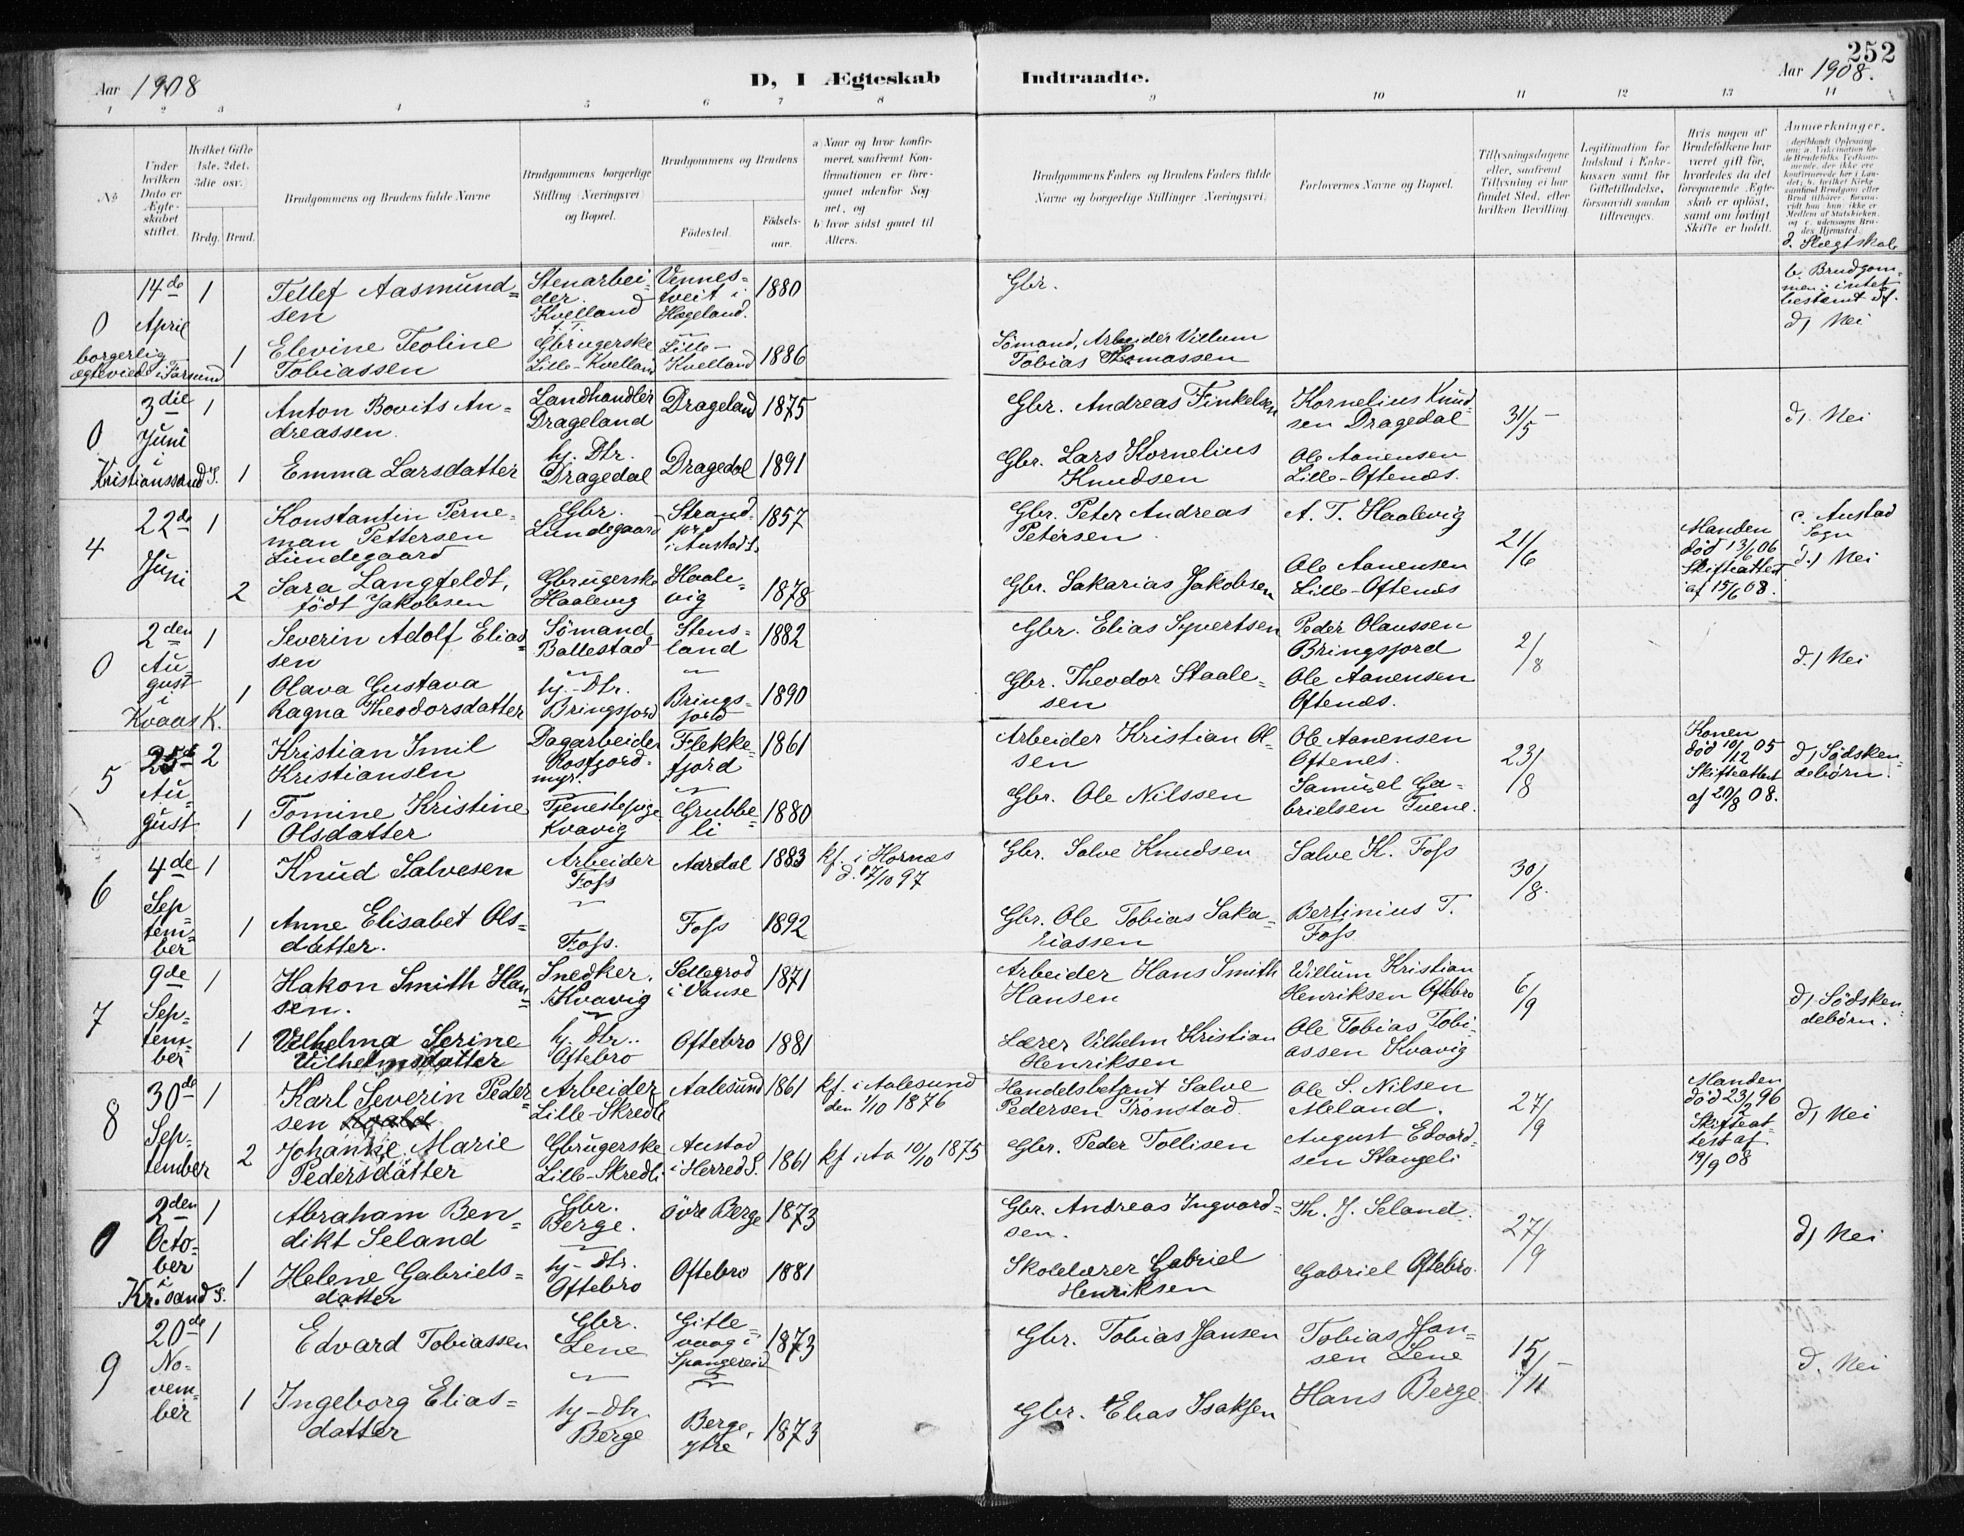 252
Aar 1908
D, I Ægteskab Indtraadte.
Aar 1908.
1 2 3 4 5 6 7 8 9 10 11 12 13 14
No
Under hvilken Dato er Ægteskabet stiftet.
Hvilket Gifte 1ste. 2det. 3die osv.
Brdg. Brud.
Brudgommens og Brudens fulde Navne
Brudgommens borgerlige Stilling (Næringsvei) og Bopæl.
Brudgommens og Brudens
Fødested. Fødselsaar.
a) Naar og hvor konfirmeret, saafremt Konfirmationen er foregaaet udenfor Sognet, og
b) hvor sidst gaaet til Alters.
Brudgommens Faders og Brudens Faders fulde Navne og borgerlige Stillinger (Næringsvei).
Forlovernes Navne og Bopæl.
Tillysningsdagene eller, saafremt Tillysning ei har fundet Sted, efter hvilken Bevilling
Legitimation for Indskud i Enkekassen samt for Giftetilladelse, forsaavidt saadan tiltrænges.
Hvis nogen af Brudefolkene har været gift før, hvorledes da det foregaaende Ægteskab er opløst, samt om lovligt Skifte er holdt.
Anmerkninger,
d. Slægtskab
0
14de April
borgerlig
ægteviede i Farsund
1
Tellef Aasmundsen
Stenarbeider.
Kvelland
Vennestveit i Hægeland.
1880
Gbr.
b. Brudgommen: intet bestemt df.
d) Nei
1
Elevine Teoline Tobiassen
Gbrugerske
Lille-Kvelland
Lille-Kvelland
1886
Sömand, Arbeider Villum
Tobias Thomassen
0
3die Juni
i
Kristianssand S.
1
Anton Bovits Andreassen.
Landhandler
Drageland
Drageland
1875
Gbr. Andreas Finkelsen
Kornelius Knudsen Dragedal
31/5 -
d). Nei
1
Emma Larsdatter
hj. Dtr.
Dragedal
Dragedal
1891
Gbr. Lars Kornelius Knudsen
Ole Aanensen
Lille-Oftenæs.
4
22de Juni
1
Konstantin Terneman Pettersen Lundegaard
Gbr.
Lundegaard
Strandfjord
i Austad S.
1857
Gbr. Peter Andreas Petersen
A. T. Haalevig
21/6
Manden død 13/6 06
Skifteattest af 15/6 08.
c. Austad Sogn
d.) Nei
2
Sara Langfeldt,
födt Jakobsen
Gbrugerske
Haalevig
Haalevig
1878
Gbr. Sakarias Jakobsen
Ole Aanensen
Lille-Oftenæs
0
2den August
i
Kvaas K.
1
Severin Adolf Eliassen
Sömand
Ballestad
Stensland
1882
Gbr. Elias Syvertsen
Peder Olaussen
Bringsjord
2/8
d.) Nei
1
Olava Gustava
Ragna Theodorsdatter
hj-Dtr.
Bringsjord
Bringsjord
1890
Gbr. Theodor Staalesen
Ole Aanensen
Oftenæs.
5
25de August
2
Kristian Imil Kristiansen
Dagarbeider
Rosfjordmyr.
Flekkefjord
1861
Arbeider Kristian Olsen
Ole Aanensen
Oftenes.
23/8
Konen død 10/12 05
Skifteattest af 20/8 08.
d) Södskendebørn.
1
Tomine Kristine Olsdatter
Tjenestepige
Kvavig
Grubbeli
1880
Gbr. Ole Nilssen
Samuel Gabrielsen Tuene.
6
4de September
1
Knud Salvesen
Arbeider
Foss
Aardal
1883
kf. i Hornæs
d. 17/10 97
Gbr. Salve Knudsen
Salve K. Foss
30/8.
1
Anne Elisabet Olsdatter.
Foss.
Foss
1892
Gbr. Ole Tobias Sakariassen
Bertinius T.
Foss
7
9de September
1
Hakon Smith Hansen.
Snedker.
Kvavig
Sellegrod
i Vanse
1871
Arbeider Hans Smith Hansen
Willum Kristian Henriksen Oftebro
6/9
d) Södskendebørn.
1
Vilhelma Serine Vilhelmsdatter
hj. Dtr.
Oftebro
Oftebro
1881
Lærer Vilhelm Kristian Henriksen
Ole Tobias Tobiassen Kvavig
8
30de September
1
Karl Severin Pedersen
Arbeider
Lille-Skredli
Aalesund
1861
kf. i Aalesund
den 1/10 1876
Handelsbetjent Salve
Pedersen Tronstad.
Ole S. Nilsen
Meland.
27/9
Manden død 23/12 96
Skifteattest af
19/9 08
d) Nei
2
Johanne Marie Pedersdatter
Gbrugerske
Lille-Skredli
Austad
i Herred S.
1861
kf i Au 10/10 1875
Gbr. Peder Tollisen
August Edvardsen Stangeli
0
2den October
i
Krisand S.
1
Abraham Bendikt Seland
Gbr.
Berge.
övre Berge
1873
Gbr. Andreas Ingvardsen.
Th. J. Seland.
27/9
d) Nei
1
Helene Gabrielsdatter
hj-Dtr.
Oftebro
Oftebro
1881
Skolelærer Gabriel Henriksen
Gabriel Oftebro.
9
20de November
1
Edvard Tobiassen
Gbr.
Lene
Gitlevaag i Spangereid
1873
Gbr. Tobias Jansen
Tobias Jansen Lene
15/11 -
d. Nei
1
Ingeborg Eliasdatter
hj-Dtr
Berge
Berge, ytre
1873
Gbr. Elias Isaksen
Hans Berge